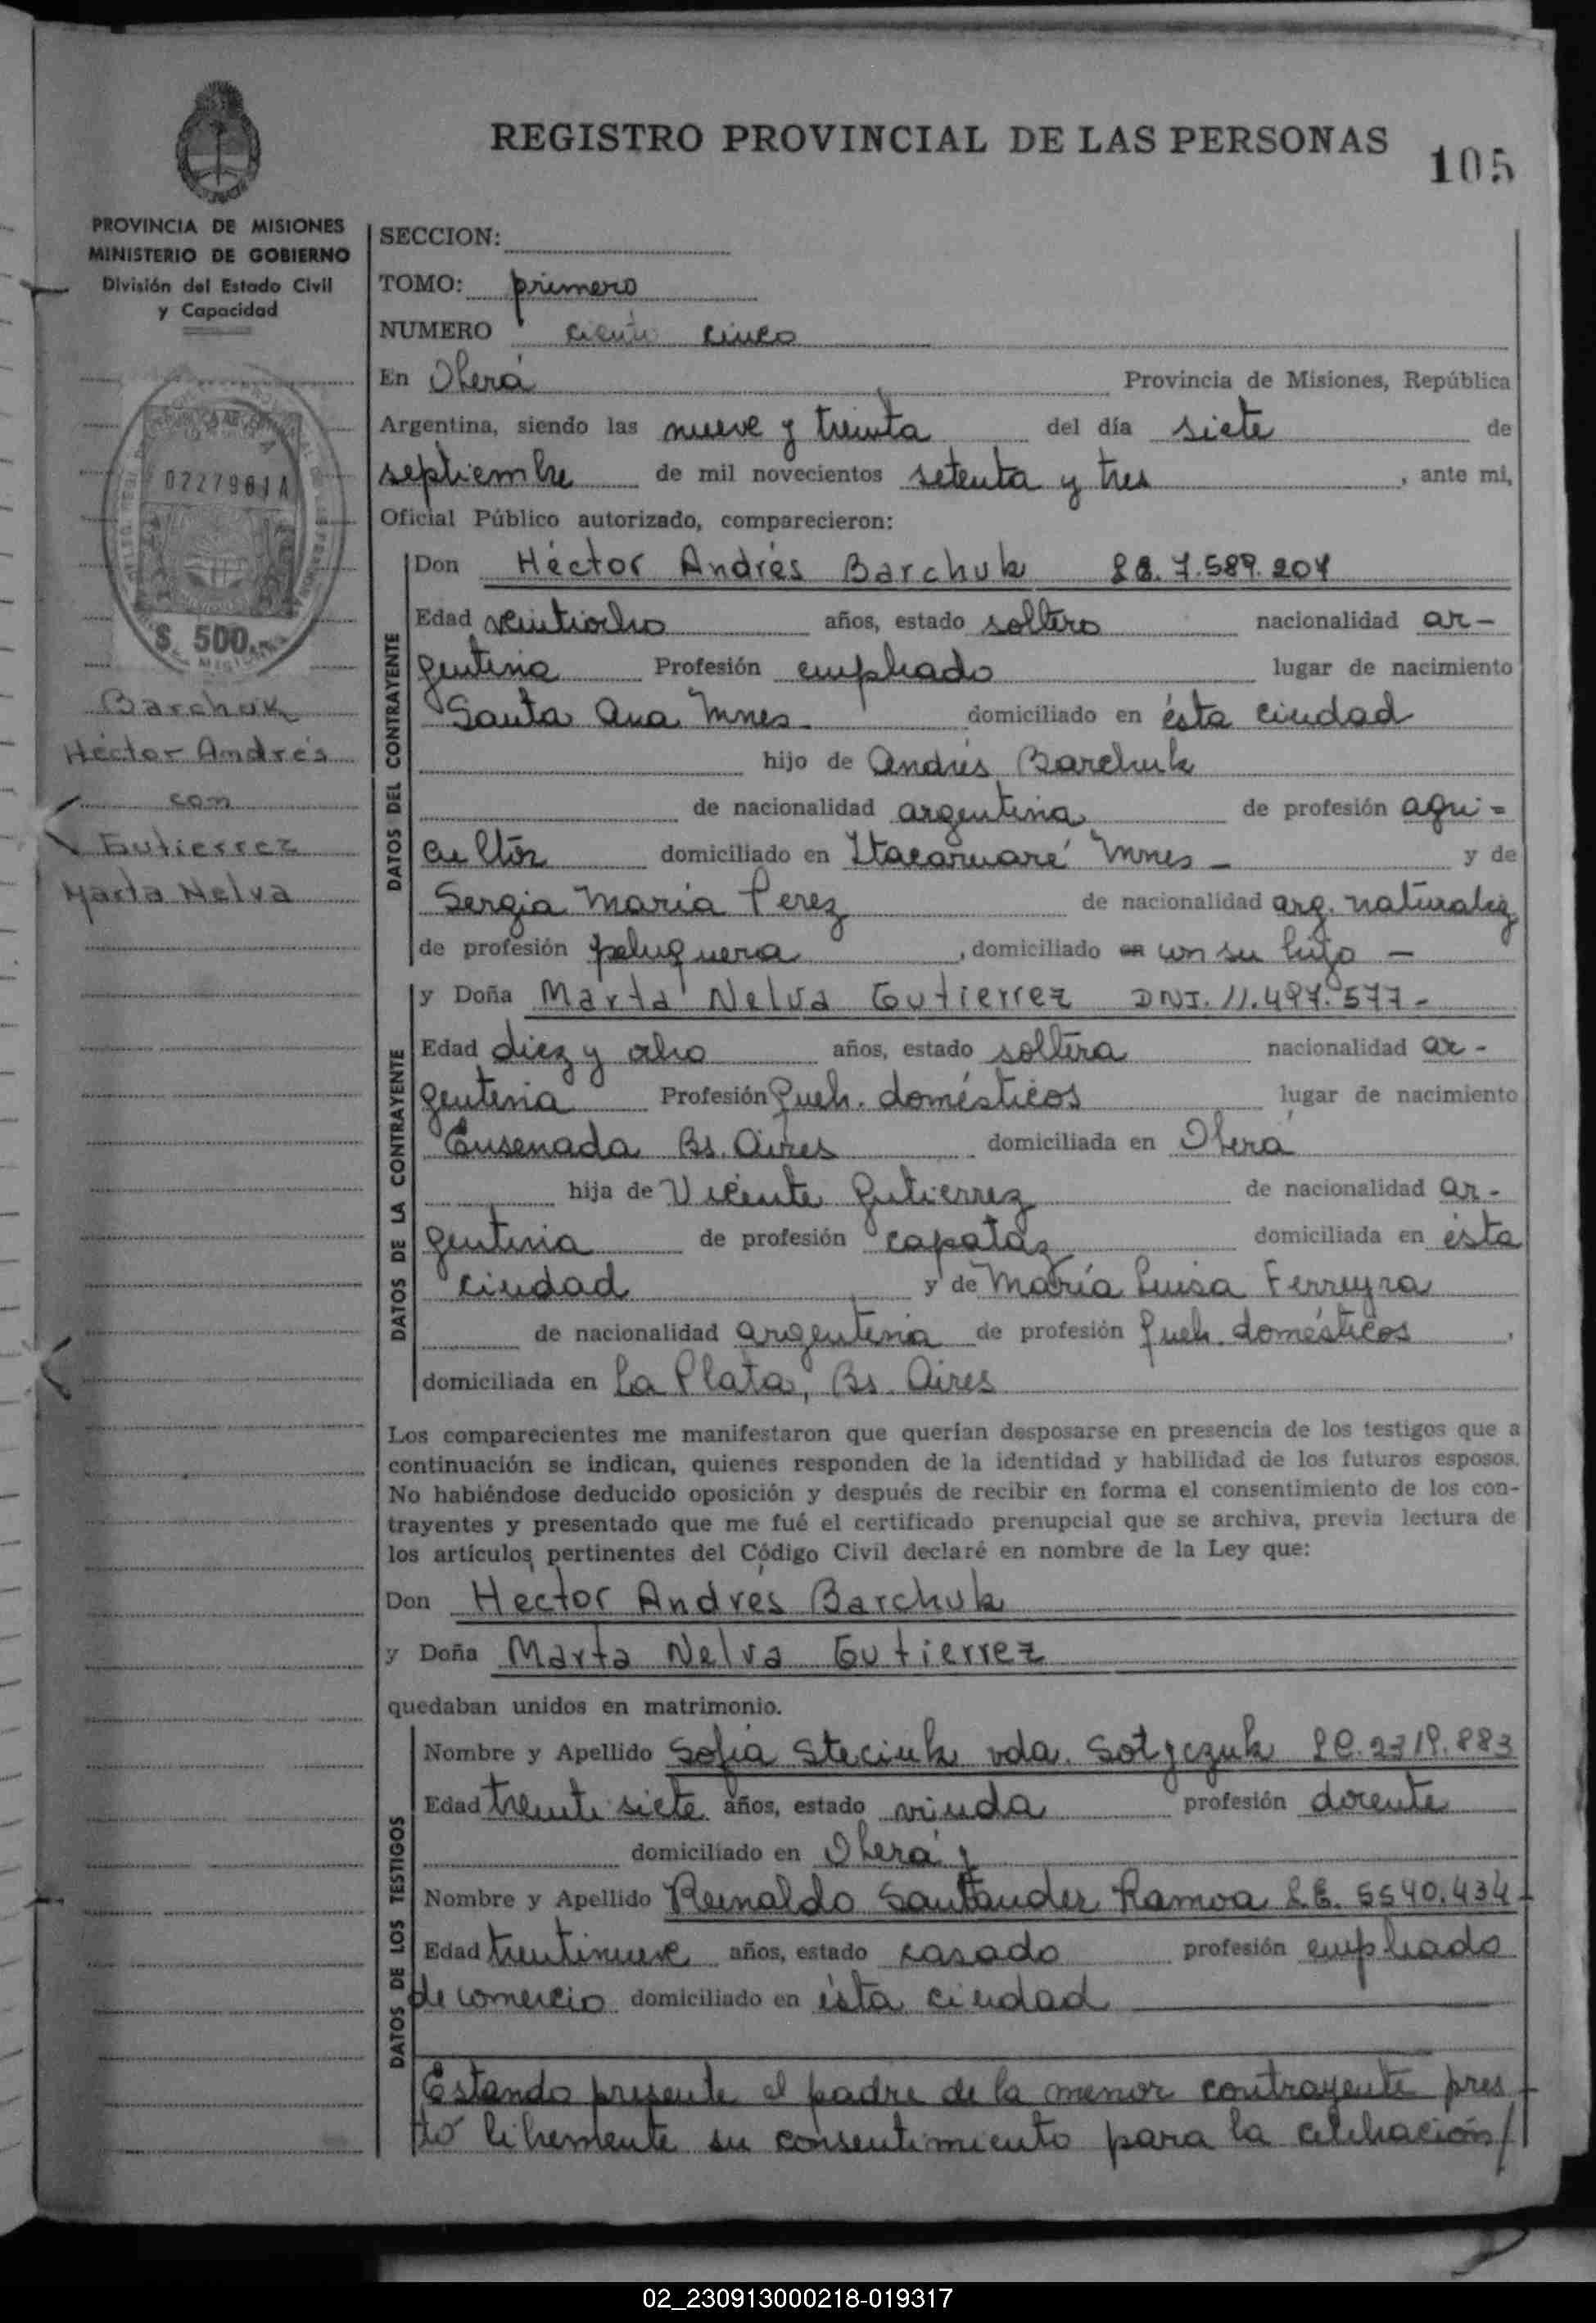 REGISTRO PROVINCIAL DE LAS PERSONAS
105
PROVINCIA DE MISIONES
MINISTERIO DE GOBIERNO
División del Estado Civil
y Capacidad
0227981A
$ 500
Barchuk
Héctor Andrés
con
Gutierrez
Marta Nelva
SECCION:
TOMO: primero
NUMERO ciento cinco
En Oberá Provincia de Misiones, República
Argentina, siendo las nueve y treinta del día siete de
septiembre de mil novecientos setenta y tres, ante mi,
Oficial Público autorizado, comparecieron:
DATOS DEL CONTRAYENTE
Don Héctor Andrés Barchuk 7.589.204
Edad veintiocho años, estado soltero nacionalidad ar-
gentina Profesión empleado lugar de nacimiento
Santa Ana Mnes domiciliado en ésta ciudad
hijo de Andrés Barchuk
de nacionalidad argentina de profesión agri=
cultor domiciliado en Itacaruaré Mnes - y de
Sergia María Perez de nacionalidad arg. naturaliz
de profesión peluquera, domiciliado en con su hijo -
DATOS DE LA CONTRAYENTE
y Doña Marta Nelva Gutierrez DNI. 11.497.577-
Edad diez y ocho años, estado soltera nacionalidad ar-
gentina Profesión Queh. domésticos lugar de nacimiento
Ensenada Bs. Aires domiciliada en Oberá
hija de Vicente Gutierrez de nacionalidad ar-
gentina de profesión capataz domiciliada en ésta
ciudad y de María Luisa Ferreyra
de nacionalidad argentina de profesión Queh. domésticos,
domiciliada en La Plata, Bs. Aires
Los comparecientes me manifestaron que querían desposarse en presencia de los testigos que a
continuación se indican, quienes responden de la identidad y habilidad de los futuros esposos.
No habiéndose deducido oposición y después de recibir en forma el consentimiento de los con-
trayentes y presentado que me fué el certificado prenupcial que se archiva, previa lectura de
los artículos pertinentes del Código Civil declaré en nombre de la Ley que:
Don Hector Andrés Barchuk
y Doña Marta Nelva Gutierrez
quedaban unidos en matrimonio.
DATOS DE LOS TESTIGOS
Nombre y Apellido Sofia Steciuk vda. Sotyczuk LC. 2319.883
Edad treinta siete años, estado viuda profesión docente
domiciliado en Oberá y
Nombre y Apellido Reinaldo Santander Ramoa L.E. 5540.434-
Edad treintinueve años, estado casado profesión empleado
de comercio domiciliado en ésta ciudad
Estando presente el padre de la menor contrayente pres
tó libremente su consentimiento para la celebración/
02_230913000218-019317